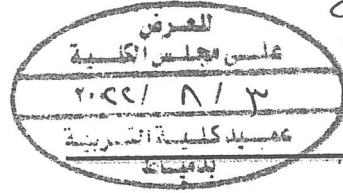 للعرض
على مجلس الكلية
٣ / ٨ / ٢٠٢٢
عميد كلية التربية
بدمياط